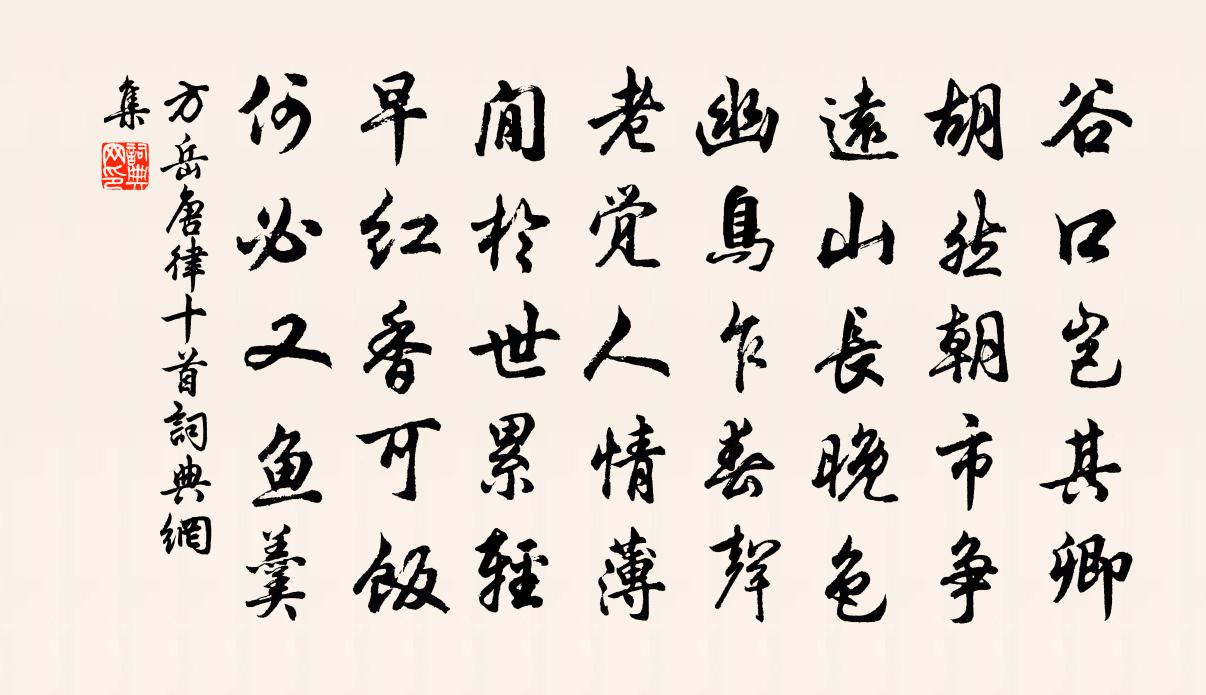 谷口岂其卿
胡然朝市争
遠山長晚色
幽鳥乍春聲
老觉人情薄
閒於世累輕
早红香可飯
何必又魚羹
方岳唐律十首詞典網
集
詞典網印